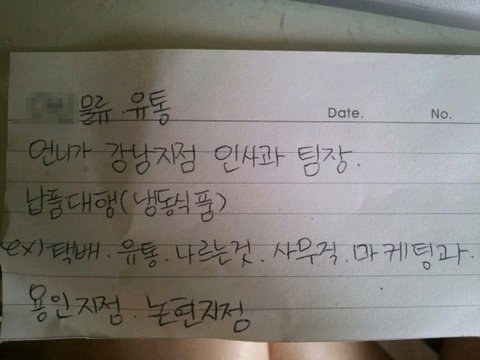 물류.유통
Date. No.
언니가 강남지점 인사과 팀장.
납품대행(냉동식품)
ex)택배.유통.나르는것.사무직.마케팅과.
용인지점.논현지점